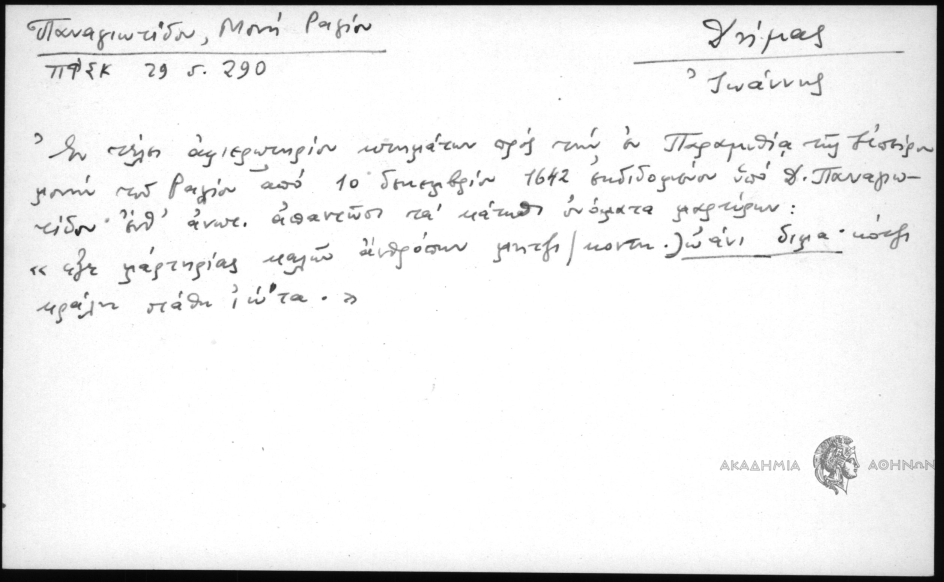 Παναγιωτίδου, Μονὴ Ραγίου
Δήμας
ΠΦΣΚ 29 σ. 290
Ἰωάννης
Ἐν τέλει ἀφιερωτηρίου κτημάτων πρὸς τὴν ἐν Παραμυθίᾳ τῆς Ἠπείρου
μονὴν τοῦ Ραγίου ἀπὸ 10 δεκεμβρίου 1642 ἐκδιδομένου ὑπὸ Δ. Παναγιω-
τίδου ἔνθ' ἀνωτ. ἀπαντῶσι τὰ κάτωθι ὀνόματα μαρτύρων:
« εξε μάρτηρίας καλῶν ἀνθρόπων μητζι / κοντη.) ὠάνι διμα κότζι
κράλη στάθη ἰώτα. »
ΑΚΑΔΗΜΙΑ ΑΘΗΝΩΝ